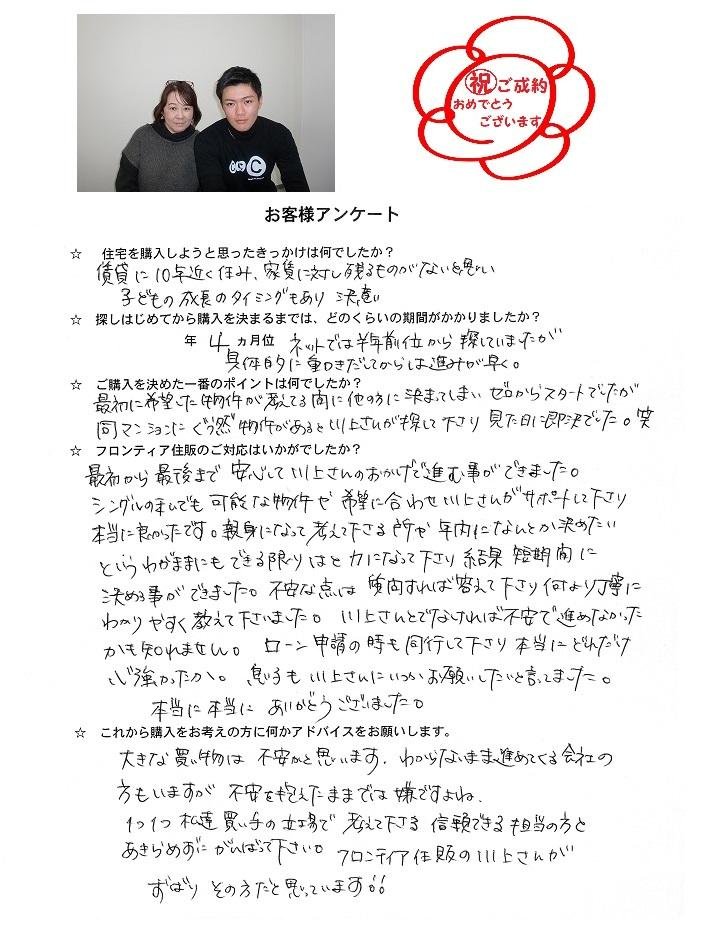 祝ご成約
おめでとう
ございます
お客様アンケート
☆ 住宅を購入しようと思ったきっかけは何でしたか？
賃貸に10年近く住み、家賃に対し残るものがないと思い
子どもの成長のタイミングもあり 決意
☆ 探しはじめてから購入を決まるまでは、どのくらいの期間がかかりましたか？
年 4 ヵ月位 ネットでは半年前位から探していましたが
具体的に動きだしてからは進みが早く。
☆ ご購入を決めた一番のポイントは何でしたか？
最初に希望した物件が考えてる間に他の方に決まってしまい ゼロからスタートでしたが
同マンションにぐう然物件があると川上さんが探して下さり 見た日に即決でした。笑
☆ フロンティア住販のご対応はいかがでしたか？
最初から最後まで 安心して川上さんのおかげで進む事ができました。
シングルの私でも可能な物件や 希望に合わせ川上さんがサポートして下さり
本当に良かったです。親身になって考えて下さる所や年内になんとか決めたい
というわがままにもできる限りはと力になって下さり 結果 短期間に
決める事ができました。不安な点は 質問すれば答えて下さり何より丁寧に
わかりやすく教えて下さいました。 川上さんとでなければ不安で進めなかった
かも知れません。 ローン申請の時も同行して下さり本当にどれだけ
心強かったか。 息子も川上さんにいつかお願いしたいと言ってました。
本当に本当に ありがとうございました。
☆ これから購入をお考えの方に何かアドバイスをお願いします。
大きな買い物は 不安かと思います。わからないまま進めてくる会社の
方もいますが 不安を抱えたままでは嫌ですよね。
1つ1つ 私達買い手の立場で 考えて下さる 信頼できる担当の方と
あきらめずにがんばって下さい。 フロンティア住販の川上さんが
ずばり その方だと思っています!!